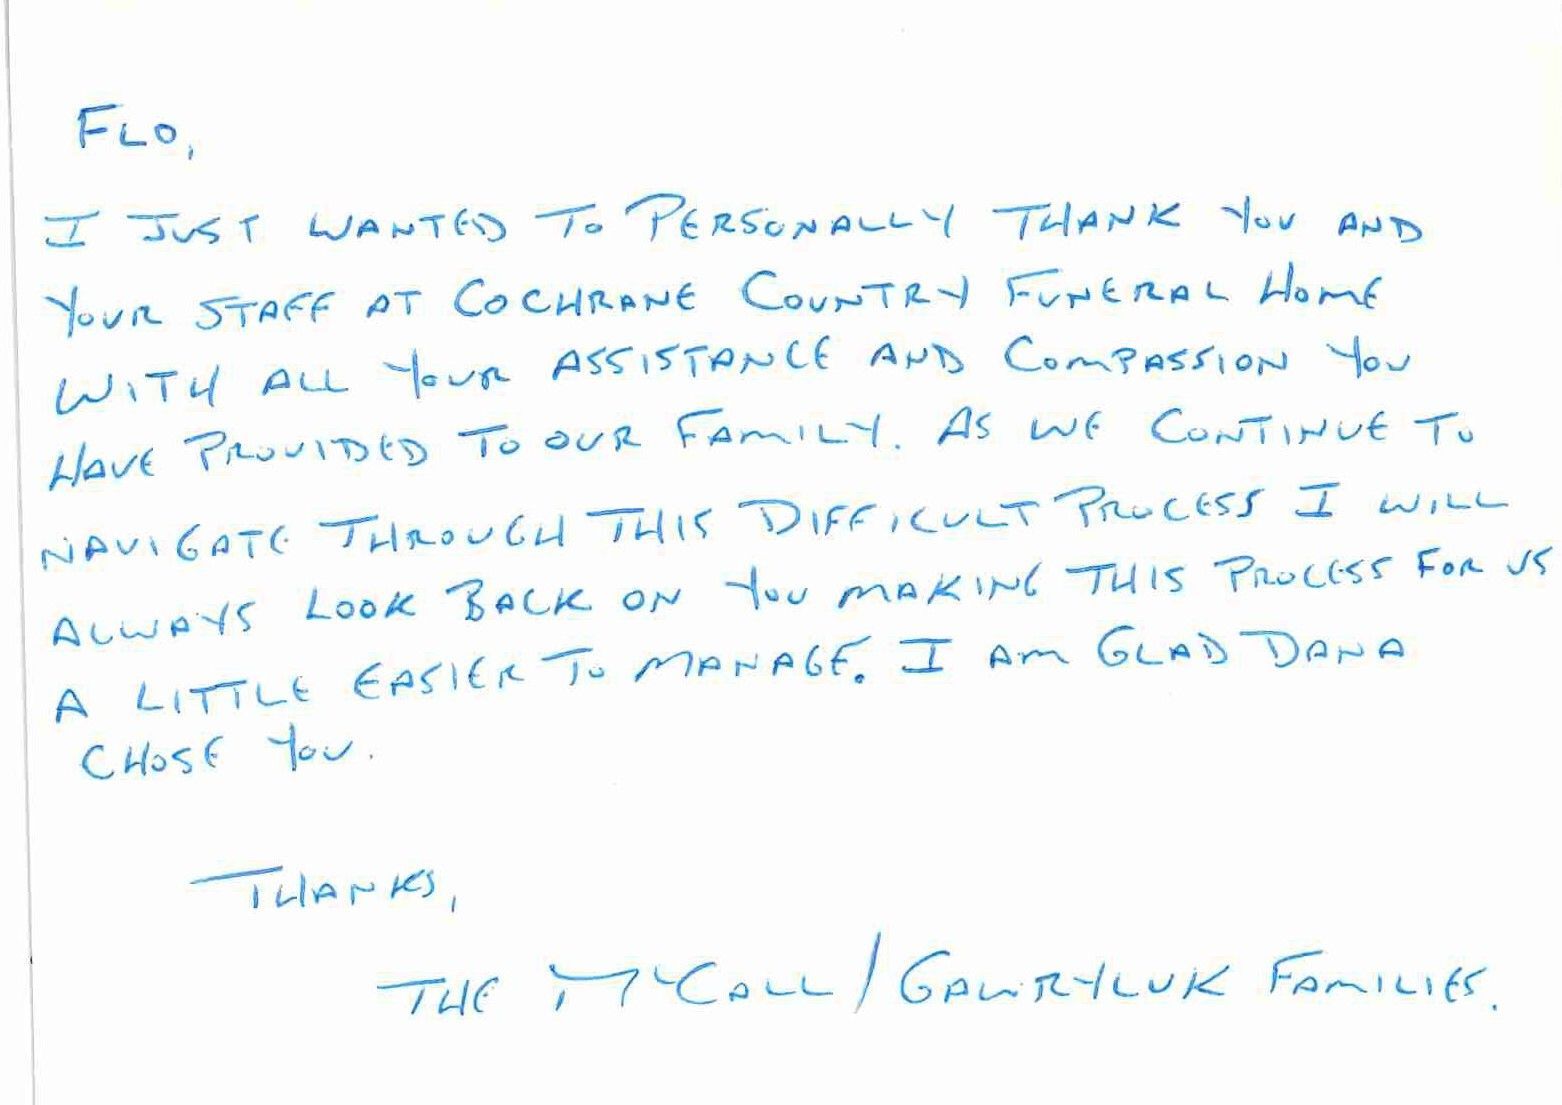 FLO,
I JUST WANTED TO PERSONALLY THANK YOU AND
YOUR STAFF AT COCHRANE COUNTRY FUNERAL HOME
WITH ALL YOUR ASSISTANCE AND COMPASSION YOU
HAVE PROVIDED TO OUR FAMILY. AS WE CONTINUE TO
NAVIGATE THROUGH THIS DIFFICULT PROCESS I WILL
ALWAYS LOOK BACK ON YOU MAKING THIS PROCESS FOR US
A LITTLE EASIER TO MANAGE. I AM GLAD DANA
CHOSE YOU.
THANKS,
THE McCALL/GAWRYLUK FAMILIES.